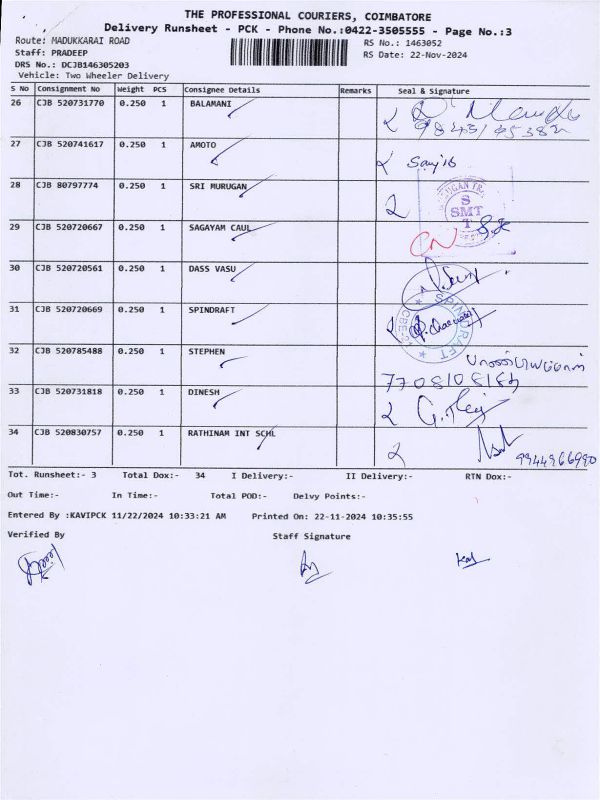 THE PROFESSIONAL COURIERS, COIMBATORE
Delivery Runsheet - PCK - Phone No.:0422-3505555 - Page No.:3
Route: MADUKKARAI ROAD
RS No.: 1463052
Staff: PRADEEP
RS Date: 22-Nov-2024
DRS No.: DCJB146305203
Vehicle: Two Wheeler Delivery
S No Consignment No Weight PCS Consignee Details Remarks Seal & Signature
26 CJB 520731770 0.250 1 BALAMANI
27 CJB 520741617 0.250 1 AMOTO
28 CJB 80797774 0.250 1 SRI MURUGAN
SMT
29 CJB 520720667 0.250 1 SAGAYAM CAUL
CN
30 CJB 520720561 0.250 1 DASS VASU
31 CJB 520720669 0.250 1 SPINDRAFT
SPINDRAFT
32 CJB 520785488 0.250 1 STEPHEN
33 CJB 520731818 0.250 1 DINESH
34 CJB 520830757 0.250 1 RATHINAM INT SCHL
9944966990
Tot. Runsheet:- 3 Total Dox:- 34 I Delivery:- II Delivery:- RTN Dox:-
Out Time:- In Time:- Total POD:- Delvy Points:-
Entered By :KAVIPCK 11/22/2024 10:33:21 AM Printed On: 22-11-2024 10:35:55
Verified By Staff Signature